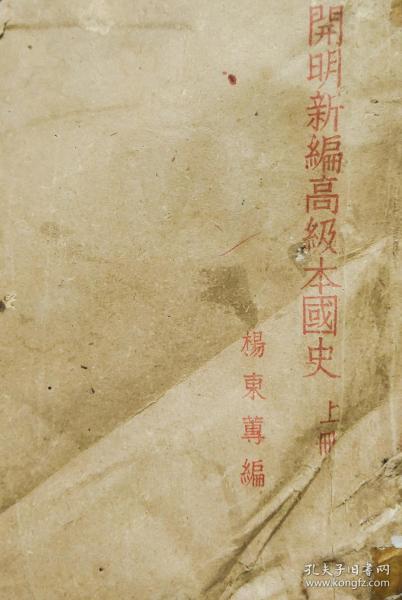 開明新編高級本國史 上冊
楊東蓴編
孔夫子旧书网
www.kongfz.com